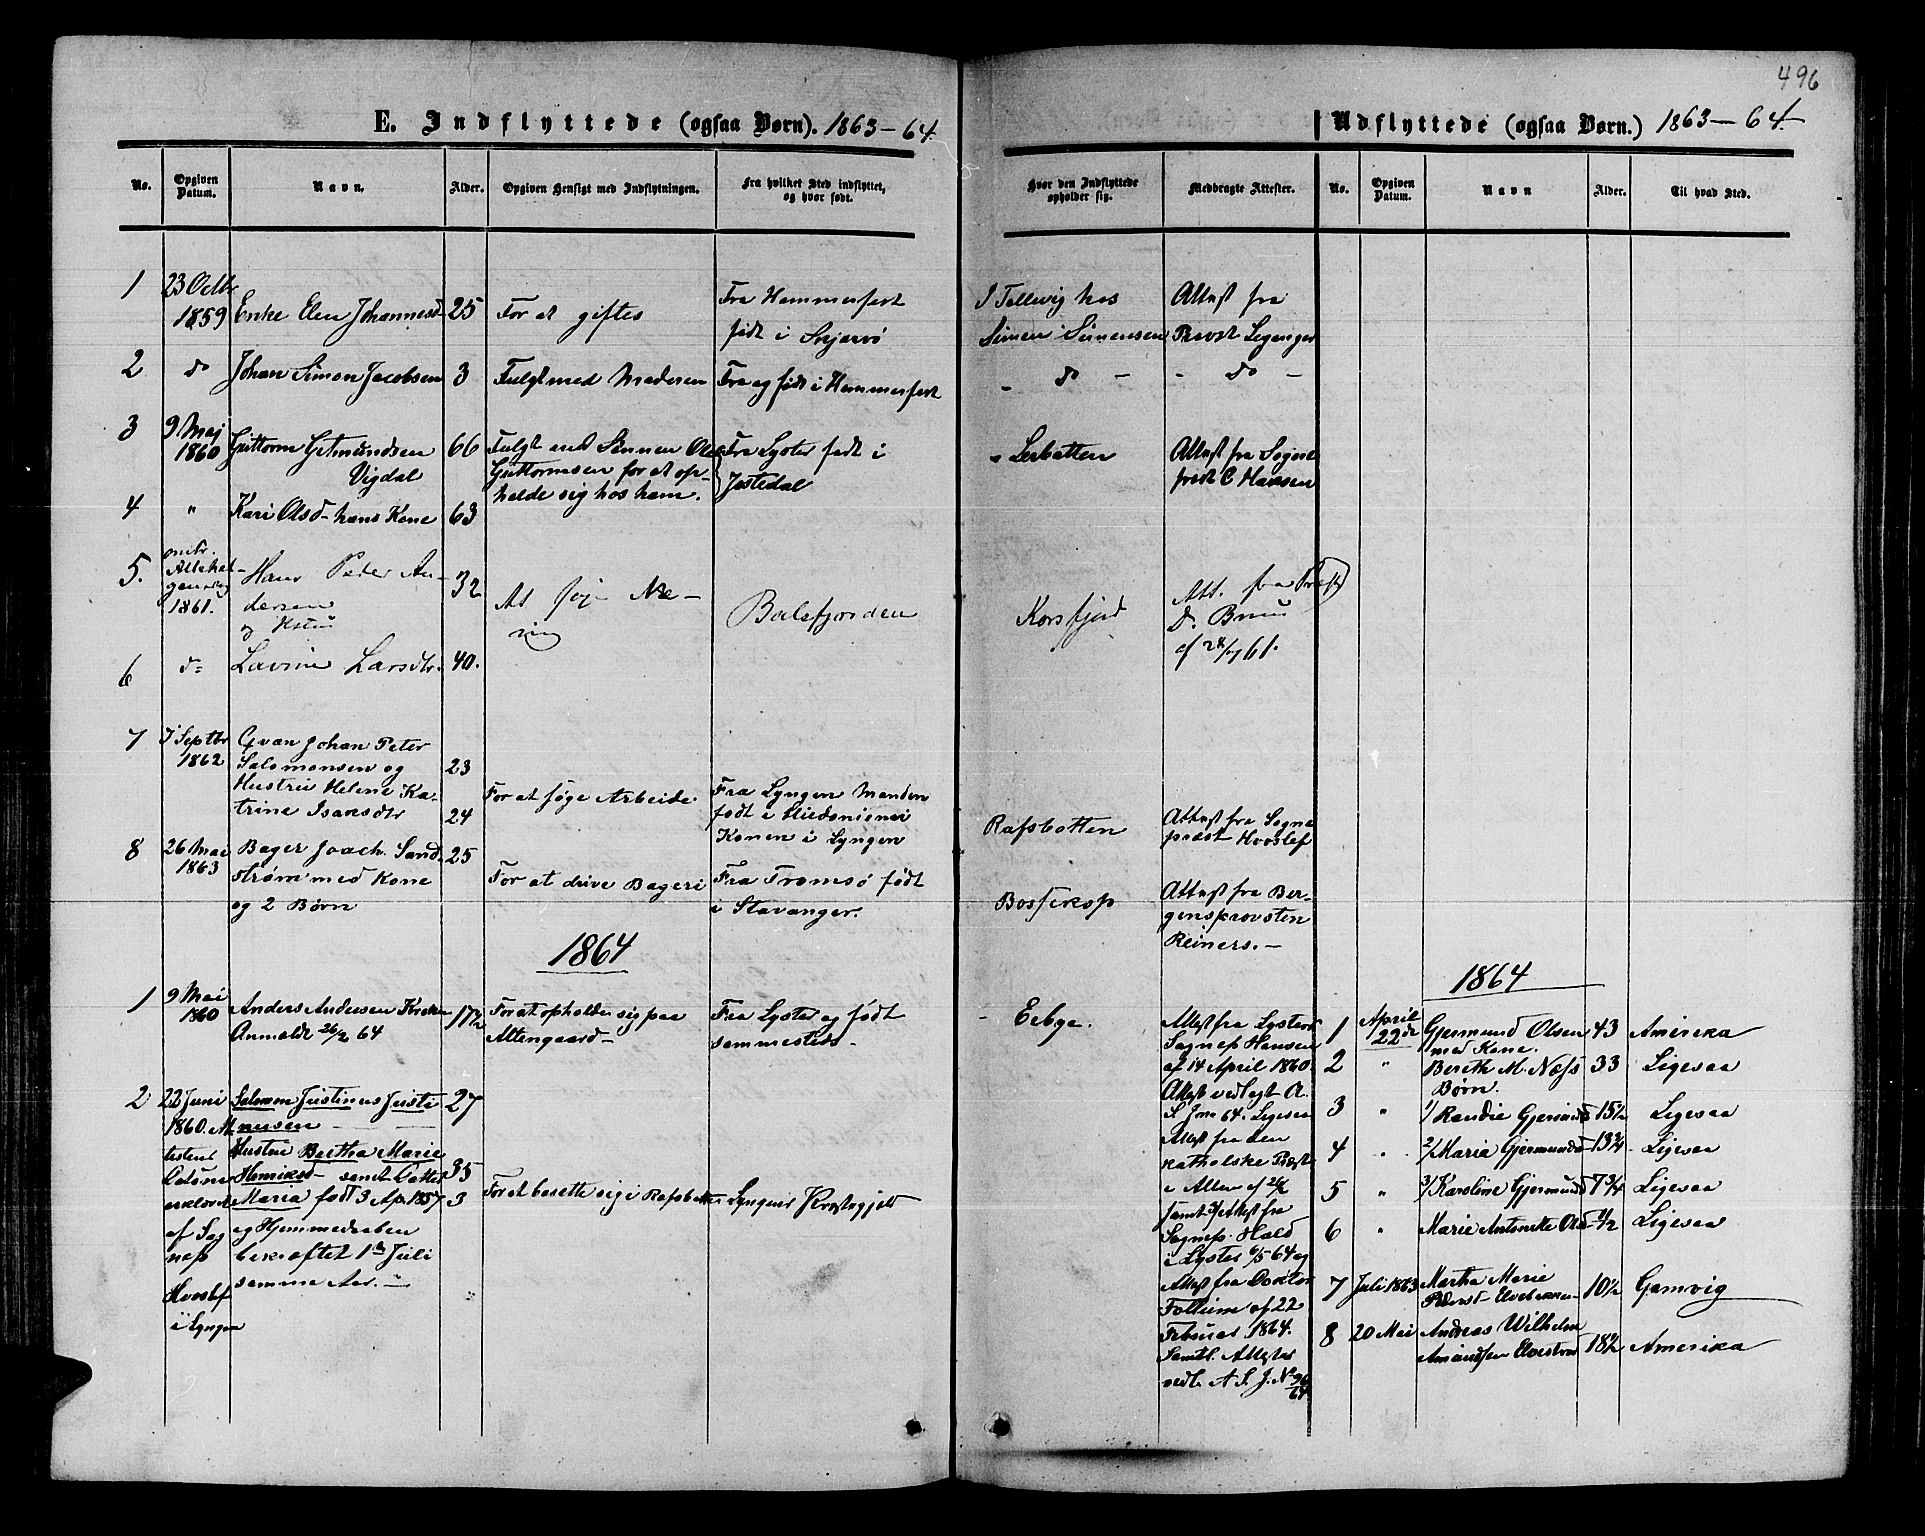 496
E. Indflyttede (ogsaa Børn). 1863-64.
No.
Opgiven Datum.
Navn.
Alder.
Opgiven Hensigt med Indflytningen.
Fra hvilket Sted indflyttet, og hvor født.
Hvor den Indflyttede opholder sig.
Medbragte Attester.
1
23 Octbr
1859
Enke Elen Johannesd
25
For at giftes
Fra Hammerfest
født i Skjervø
I Tallevig hos
Simen Simensen
Attest fra
Provst
2
do
Johan Simon Jacobsen
3
Fulgt med Moderen
Fra og født i Hammerfest
- do -
- do -
3
9 Maj
1860
Guttorm Getmundsen
Vigdal
66
Fulgt med Sønnen Ole
Guttormsen for at op-
holde sig hos ham.
Fra Lyster født i
Jostedal
Attest fra Sogne
prest C Hansen
4
"
Kari Olsd- hans Kone
63
5.
1861.
Hans Peder An-
dersen
og Hustru
32
At søge Næ-
ring
Balsfjorden
Korsfjord
Att. fra
61.
6
do
Lavine Larsdtr.
40.
7
7 Septbr
1862
Johan Peter
Salomonsen og
Hustru Helene Ka-
trine Isaksdtr
23
24
For at søge Arbeide
Fra Lyngen Manden
født i
Konen i Lyngen
Rafsbotten
Attest fra Sogne
præst Hvoslef
8
26 Mai
1863
Bager Joach. Sand-
strøm med Kone
og 2 Børn
25
For at drive Bageri
Fra Tromsø født
i Stavanger.
Bossekop
Attest fra Ber-
gensprovsten
Reiners.-
1864
1
9 Mai
1860
Anders Andersen
Anmeldt 26/2 64
17½
For at opholde sig paa
Altengaard-
Fra Lyster og født
sammesteds-
Attest fra Lysters
Sognep. Hansen
af 14 April 1860.
Attest vedlagt A.
S. J no 64. Ligesaa
Attest fra den
katholske Præst
i Alten af
samt Attest fra
Sognep. Hald
i Lyster 6/5 64 og
Attest fra Doctor
af 22
Februar 1864.
Samtl. Attester
vedl. A. S. J. No
2
22 Juni
1860.
af Sog
nep
Hvoslef
i Lyngen
Salomon Justinus Justi
nussen
Hustru Bertha Marie
Henriksd- samt Datter
Maria født 3 Ap. 1857
og Hjemmedaaben
bekræftet 1ste Juli
samme Aar.-
27
35
3
For at bosætte sig i Rafsbotten
Lyngens Præstegjeld
Udflyttede (ogsaa Børn.) 1863-64.
No.
Opgiven Datum.
Navn
Alder.
Til hvad Sted.
1864
1
April
22de
Gjermund Olsen
med Kone.
43
Amerika
2
"
Berith M. Næss
Børn.
33
Ligesaa
3
"
1/ Randie Gjermunds
15½
Ligesaa
4
"
2/ Maria Gjermundsd
13¾
Ligesaa
5
"
3/ Karoline Gjermundsd
7¾
Ligesaa
6
"
Marie Antonette Olsd
½
Ligesaa
7
Juli 1863
Martha Marie
Pedersd- Elvebakken
10½
Gamvig
8
20 Mai
Andreas Wilhelm
Amundsen Elvestrand
18½
Amerika